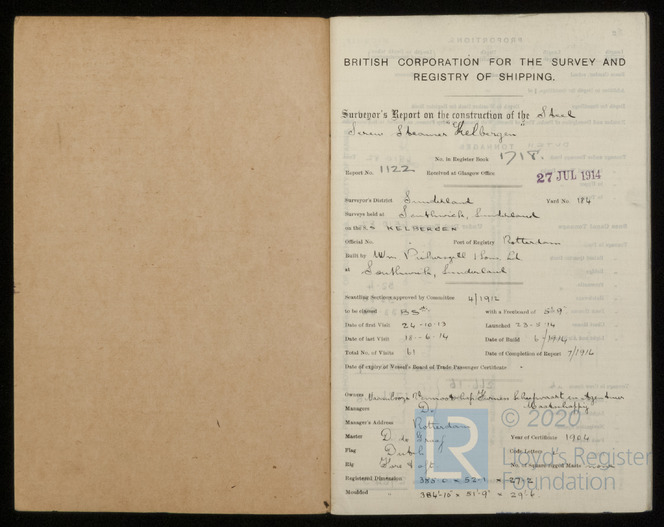 BRITISH CORPORATION FOR THE SURVEY AND
REGISTRY OF SHIPPING.
Surveyor's Report on the construction of the Steel
Screw Steamer "Kelbergen"
No. in Register Book 1718.
Report No. 1122 Received at Glasgow Office 27 JUL 1914
Surveyor's District Sunderland Yard No. 184
Surveys held at Southwick, Sunderland
on the S.S KELBERGEN
Official No. Port of Registry Rotterdam
Built by Wm Pickersgill & Sons Ld
at Southwick, Sunderland
Scantling Sections approved by Committee 4/1912
to be classed BS* with a Freeboard of 5'-9"
Date of first Visit 24-10-13 Launched 23-5-14
Date of last Visit 18-6-14 Date of Build 6/1914
Total No. of Visits 61 Date of Completion of Report 7/1914
Date of expiry of Vessel's Board of Trade Passenger Certificate
Owners
Managers Do Maatschappij
Manager's Address Rotterdam
Master D. de Graaf Year of Certificate 1904
Flag Dutch Code Letters
Rig Fore & aft No. of square rigged Masts none
Registered Dimension 385.0 × 52.1 × 27.2
Moulded 384'-10" × 51'-9" × 29'-6
LR
© 2020
Lloyd's Register
Foundation